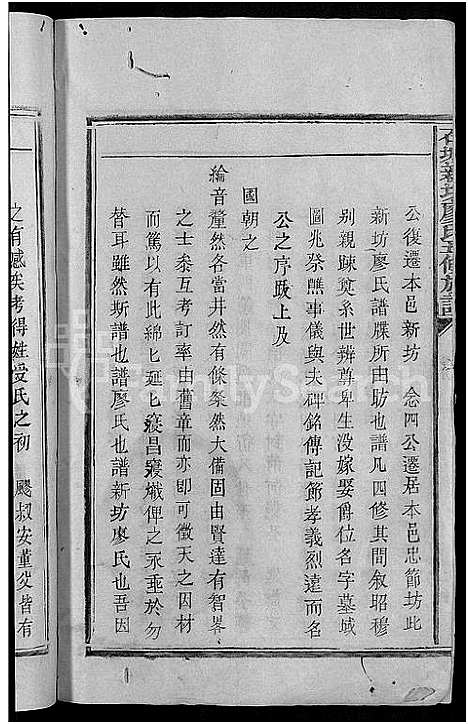 石城新坊廖氏五修族譜
公復遷本邑新坊　念四公遷居本邑忠節坊此
新坊廖氏譜牒所由昉也譜凡四修其間叙昭穆
别親踈奠系世辨尊卑生没嫁娶爵位名字墓域
圖兆祭醮事儀與夫碑銘傳記節孝義烈遠而名
公之序跋上及
國朝之
綸音釐然各當井然有條粲然大備固由賢達有智畧
之士叅互考訂率由舊章而亦即可徵天之因材
而篤以有此綿匕延匕寖昌寖熾俾之永垂於勿
替耳雖然斯譜也譜廖氏也譜新坊廖氏也吾因
之有感矣考得姓受氏之初　飂叔安董父皆有
FamilySearch